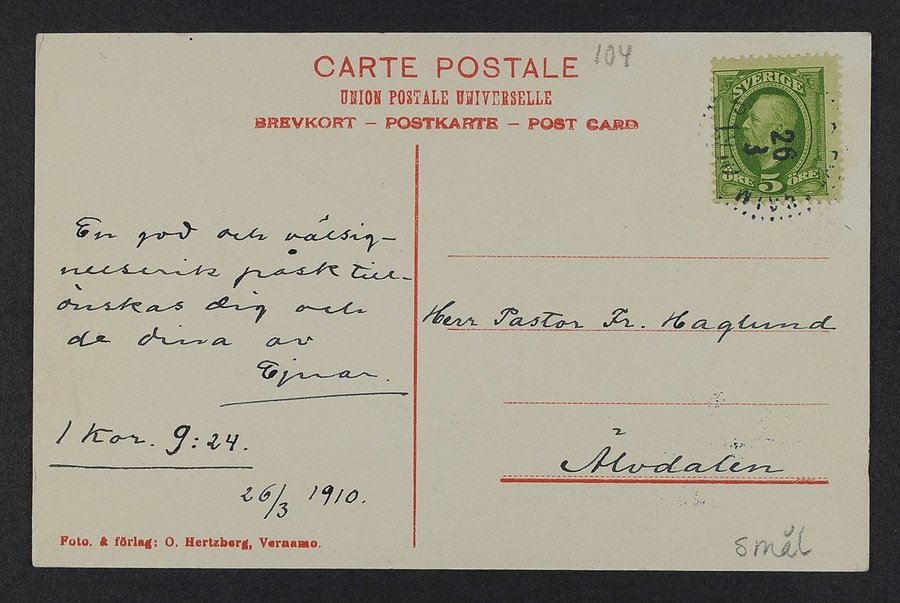 CARTE POSTALE
104
UNION POSTALE UNIVERSELLE
BREVKORT – POSTKARTE – POST CARD
SVERIGE
26
3
ÖRE 5 ÖRE
En god och välsig-
nelserik påsk till-
önskas dig och
de dina av
Ejnar.
1 Kor. 9:24.
26/3 1910.
Herr Pastor Fr. Haglund
Älvdalen
Foto. & förlag: O. Hertzberg, Vernamo.
smål